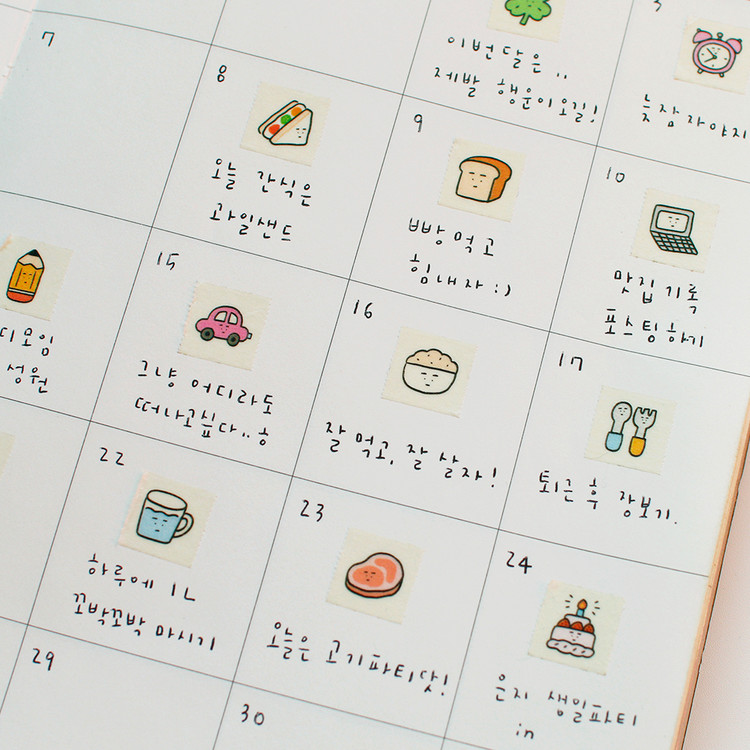 이번달은 ..
제발 행운이오길!
3
늦잠 자야지
7
8
오늘 간식은
과일샌드
9
빵 먹고
힘내자 :)
10
맛집 기록
포스팅하기
디모임
성원
15
그냥 어디라도
떠나고싶다..ㅎ
16
잘 먹고, 잘 살자!
17
퇴근 후 장보기.
22
하루에 1L
꼬박꼬박 마시기
23
오늘은 고기파티닷!
24
은지 생일파티
in
29
30